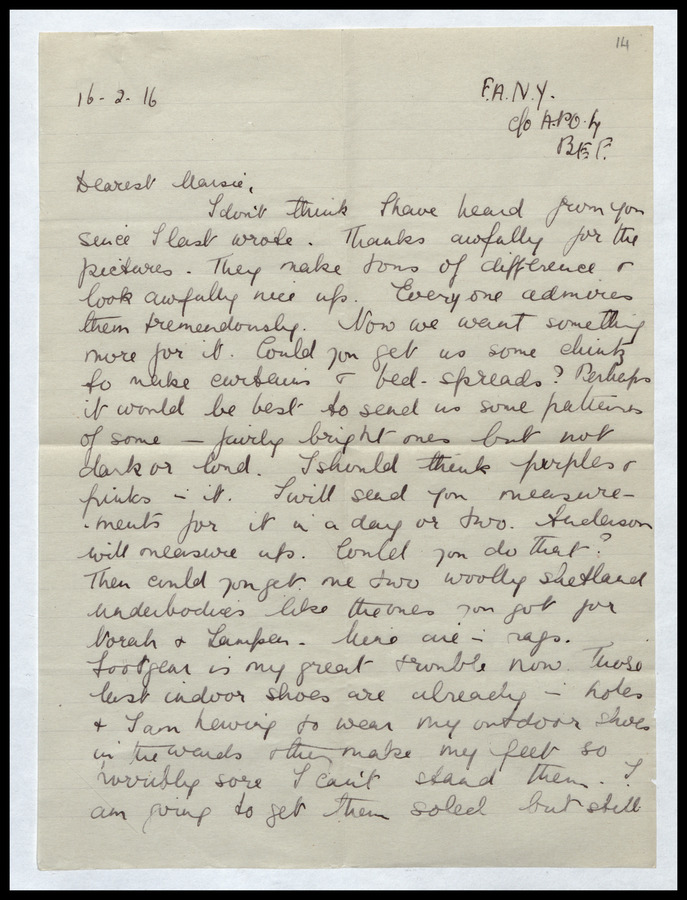 14
16-2-16
F.A.N.Y.
c/o A.P.O. 4
B.E.F.
Dearest Maisie,
I don't think I have heard from you
since I last wrote. Thanks awfully for the
pictures. They make tons of difference &
look awfully nice up. Everyone admires
them tremendously. Now we want something
more for it. Could you get us some chintz
to make curtains & bed-spreads? Perhaps
it would be best to send us some patterns
of some — fairly bright ones but not
dark or loud. I should think purples &
pinks in it. I will send you measure-
-ments for it in a day or two. Anderson
will measure up. Could you do that?
Then could you get me two woolly shetland
underbodies like the ones you got for
Norah & Lampen. Mine are in rags.
Footgear is my great trouble now. Those
last indoor shoes are already in holes
& I am having to wear my outdoor shoes
in the wards & they make my feet so
horribly sore I can't stand them. I
am going to get them soled but still